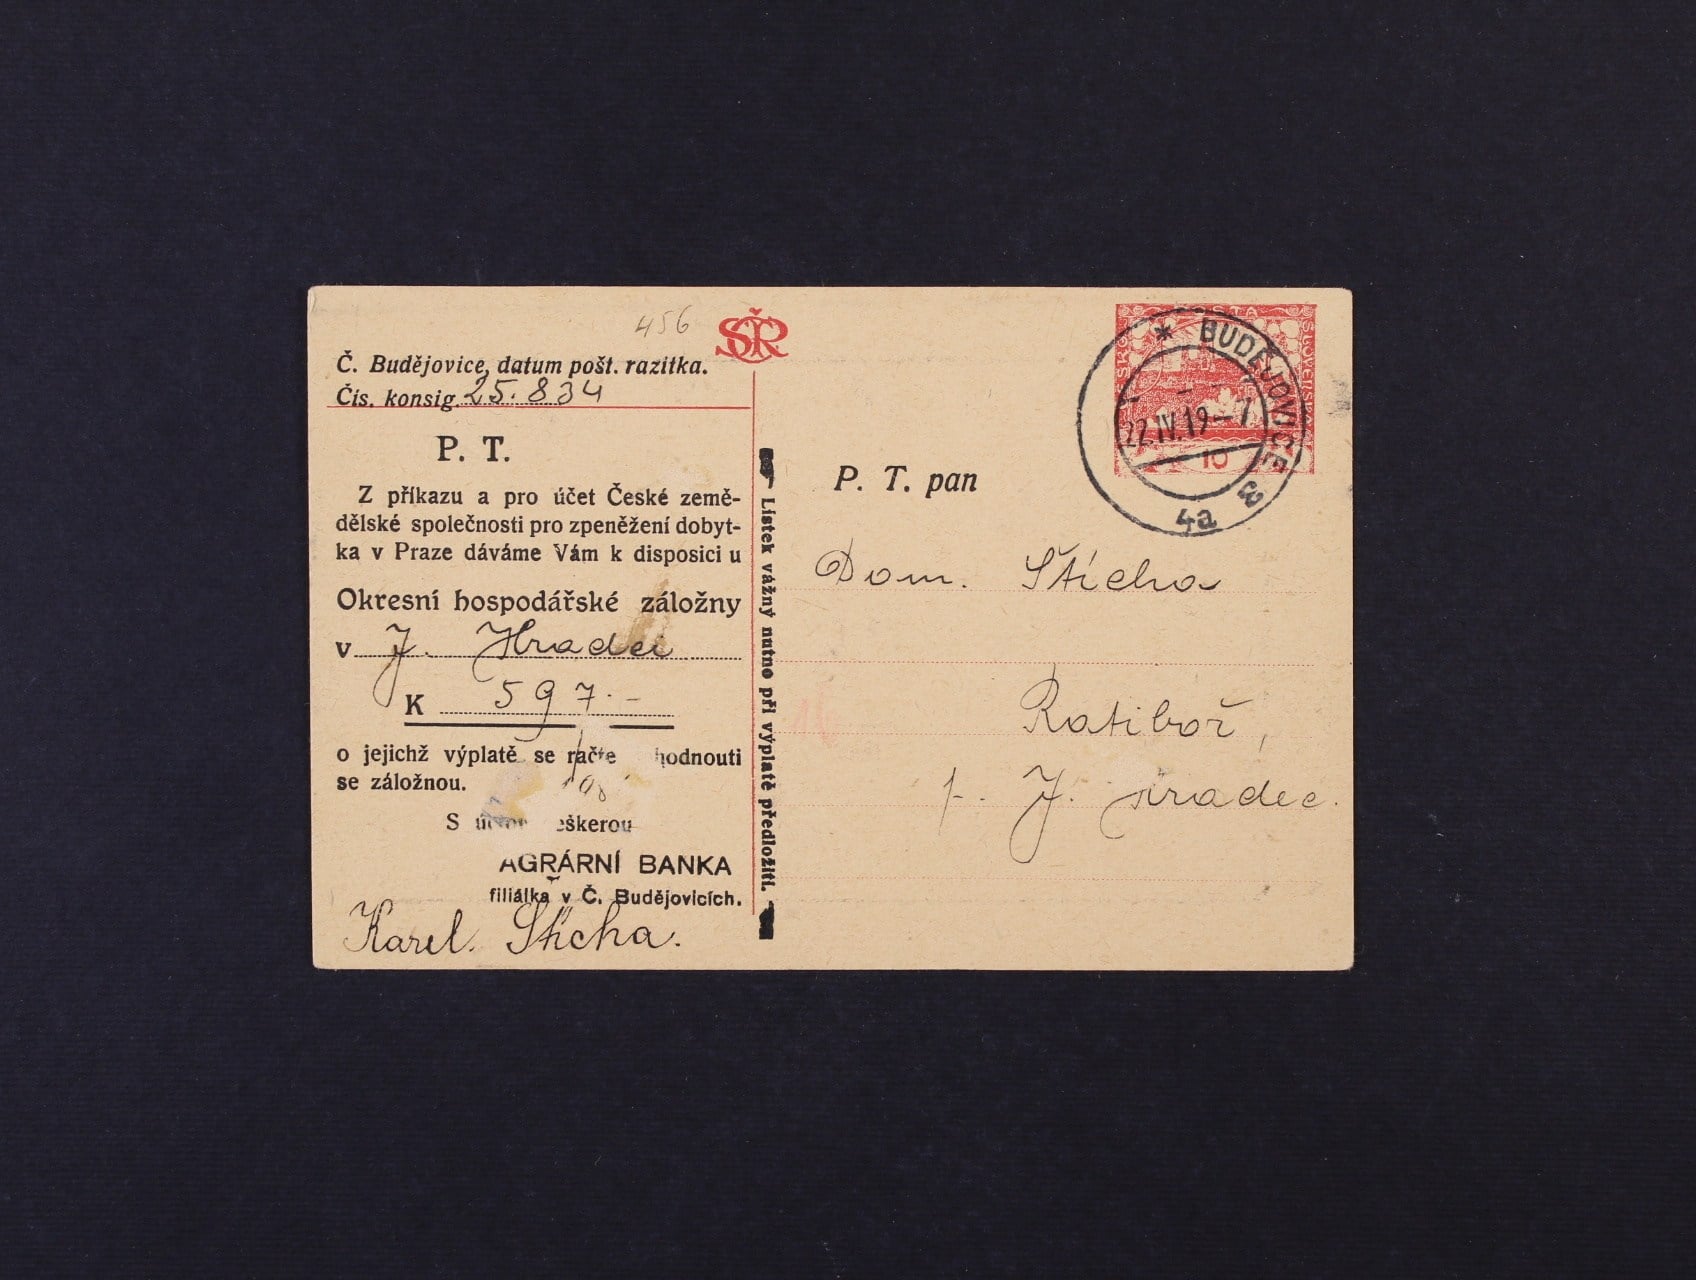 456
SČR
Č. Budějovice, datum pošt. razítka.
Čís. konsig. 25.834
P. T.
Z příkazu a pro účet České země-
dělské společnosti pro zpeněžení dobyt-
ka v Praze dáváme Vám k disposici u
Okresní hospodářské záložny
v J. Hradci
K 597.-
o jejichž výplatě se račte hodnouti
se záložnou.
S eškerou
AGRÁRNÍ BANKA
filiálka v Č. Budějovicích.
Karel Stícha.
Lístek vážný nutno při výplatě předložiti.
BUDĚJOVICE 3
22.IV.19-7
4a
10
P. T. pan
Dom. Stícha
Ratiboř,
p. J. Hradec.